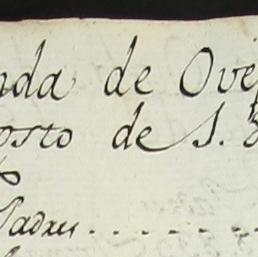 nda de Ove
osto de S.
Padres